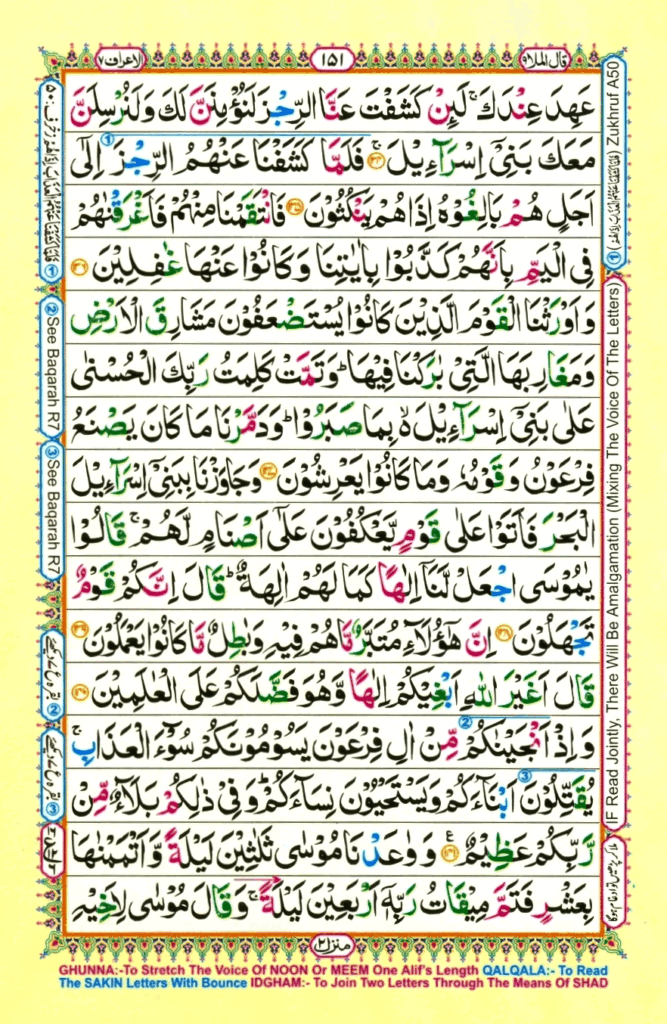 قال الملا ٩
١٥١
الاعراف ٧
عَهِدَ عِنْدَكَ ۚ لَئِنْ كَشَفْتَ عَنَّا الرِّجْزَ لَنُؤْمِنَنَّ لَكَ وَلَنُرْسِلَنَّ
مَعَكَ بَنِيْٓ اِسْرَآءِيْلَ ۚ ﴿١٣٤﴾ فَلَمَّا كَشَفْنَا عَنْهُمُ الرِّجْزَ اِلٰٓى
اَجَلٍ هُمْ بَالِغُوْهُ اِذَا هُمْ يَنْكُثُوْنَ ﴿١٣٥﴾ فَانْتَقَمْنَا مِنْهُمْ فَاَغْرَقْنٰهُمْ
فِى الْيَمِّ بِاَنَّهُمْ كَذَّبُوْا بِاٰيٰتِنَا وَكَانُوْا عَنْهَا غٰفِلِيْنَ ﴿١٣٦﴾
وَاَوْرَثْنَا الْقَوْمَ الَّذِيْنَ كَانُوْا يُسْتَضْعَفُوْنَ مَشَارِقَ الْاَرْضِ
وَمَغَارِبَهَا الَّتِيْ بٰرَكْنَا فِيْهَا ؕ وَتَمَّتْ كَلِمَتُ رَبِّكَ الْحُسْنٰى
عَلٰى بَنِيْٓ اِسْرَآءِيْلَ ۙ بِمَا صَبَرُوْا ؕ وَدَمَّرْنَا مَا كَانَ يَصْنَعُ
فِرْعَوْنُ وَقَوْمُهٗ وَمَا كَانُوْا يَعْرِشُوْنَ ﴿١٣٧﴾ وَجَاوَزْنَا بِبَنِيْٓ اِسْرَآءِيْلَ
الْبَحْرَ فَاَتَوْا عَلٰى قَوْمٍ يَّعْكُفُوْنَ عَلٰٓى اَصْنَامٍ لَّهُمْ ۚ قَالُوْا
يٰمُوْسَى اجْعَلْ لَّنَآ اِلٰهًا كَمَا لَهُمْ اٰلِهَةٌ ؕ قَالَ اِنَّكُمْ قَوْمٌ
تَجْهَلُوْنَ ﴿١٣٨﴾ اِنَّ هٰٓؤُلَآءِ مُتَبَّرٌ مَّا هُمْ فِيْهِ وَبٰطِلٌ مَّا كَانُوْا يَعْمَلُوْنَ ﴿١٣٩﴾
قَالَ اَغَيْرَ اللّٰهِ اَبْغِيْكُمْ اِلٰهًا وَّهُوَ فَضَّلَكُمْ عَلَى الْعٰلَمِيْنَ ﴿١٤٠﴾
وَاِذْ اَنْجَيْنٰكُمْ مِّنْ اٰلِ فِرْعَوْنَ يَسُوْمُوْنَكُمْ سُوْٓءَ الْعَذَابِ ۚ
يُقَتِّلُوْنَ اَبْنَآءَكُمْ وَيَسْتَحْيُوْنَ نِسَآءَكُمْ ؕ وَفِيْ ذٰلِكُمْ بَلَآءٌ مِّنْ
رَّبِّكُمْ عَظِيْمٌ ﴿١٤١﴾ وَوٰعَدْنَا مُوْسٰى ثَلٰثِيْنَ لَيْلَةً وَّاَتْمَمْنٰهَا
بِعَشْرٍ فَتَمَّ مِيْقَاتُ رَبِّهٖٓ اَرْبَعِيْنَ لَيْلَةً ۚ وَقَالَ مُوْسٰى لِاَخِيْهِ
① Zukhruf A50
IF Read Jointly, There Will Be Amalgamation (Mixing The Voice Of The Letters)
② See Baqarah R7
③ See Baqarah R7
منزل ٢
GHUNNA:-To Stretch The Voice Of NOON Or MEEM One Alif's Length QALQALA:- To Read
The SAKIN Letters With Bounce IDGHAM:- To Join Two Letters Through The Means Of SHAD